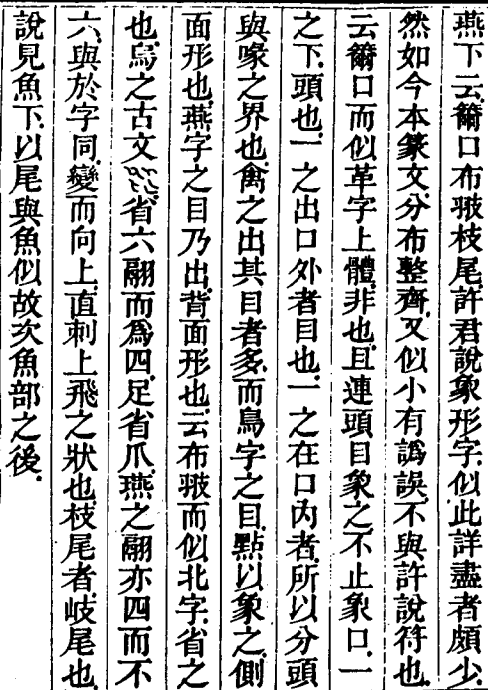 燕下云籋口布翄枝尾許君說象形字似此詳盡者頗少
然如今本篆文分布整齊又似小有譌誤不與許說符也
云籋口而似革字上體非也且連頭目象之不止象口一
之下頭也一之出口外者目也一之在口內者所以分頭
與喙之界也禽之出其目者多而鳥字之目點以象之側
面形也燕字之目乃出背面形也云布翄而似北字省之
也烏之古文省六翮而爲四足省爪燕之翮亦四而不
六與於字同變而向上直刺上飛之狀也枝尾者岐尾也
說見魚下以尾與魚似故次魚部之後